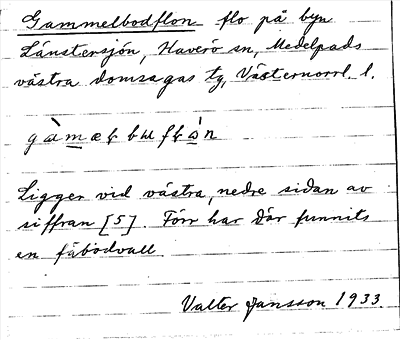 Gammelbodflon flo på byn
Länstersjön, Haverö sn, Medelpads
västra domsagas tg, Västernorrl. l.
Ligger vid västra, nedre sidan av
siffran [5]. Förr har där funnits
en fäbodvall.
Valter Jansson 1933.